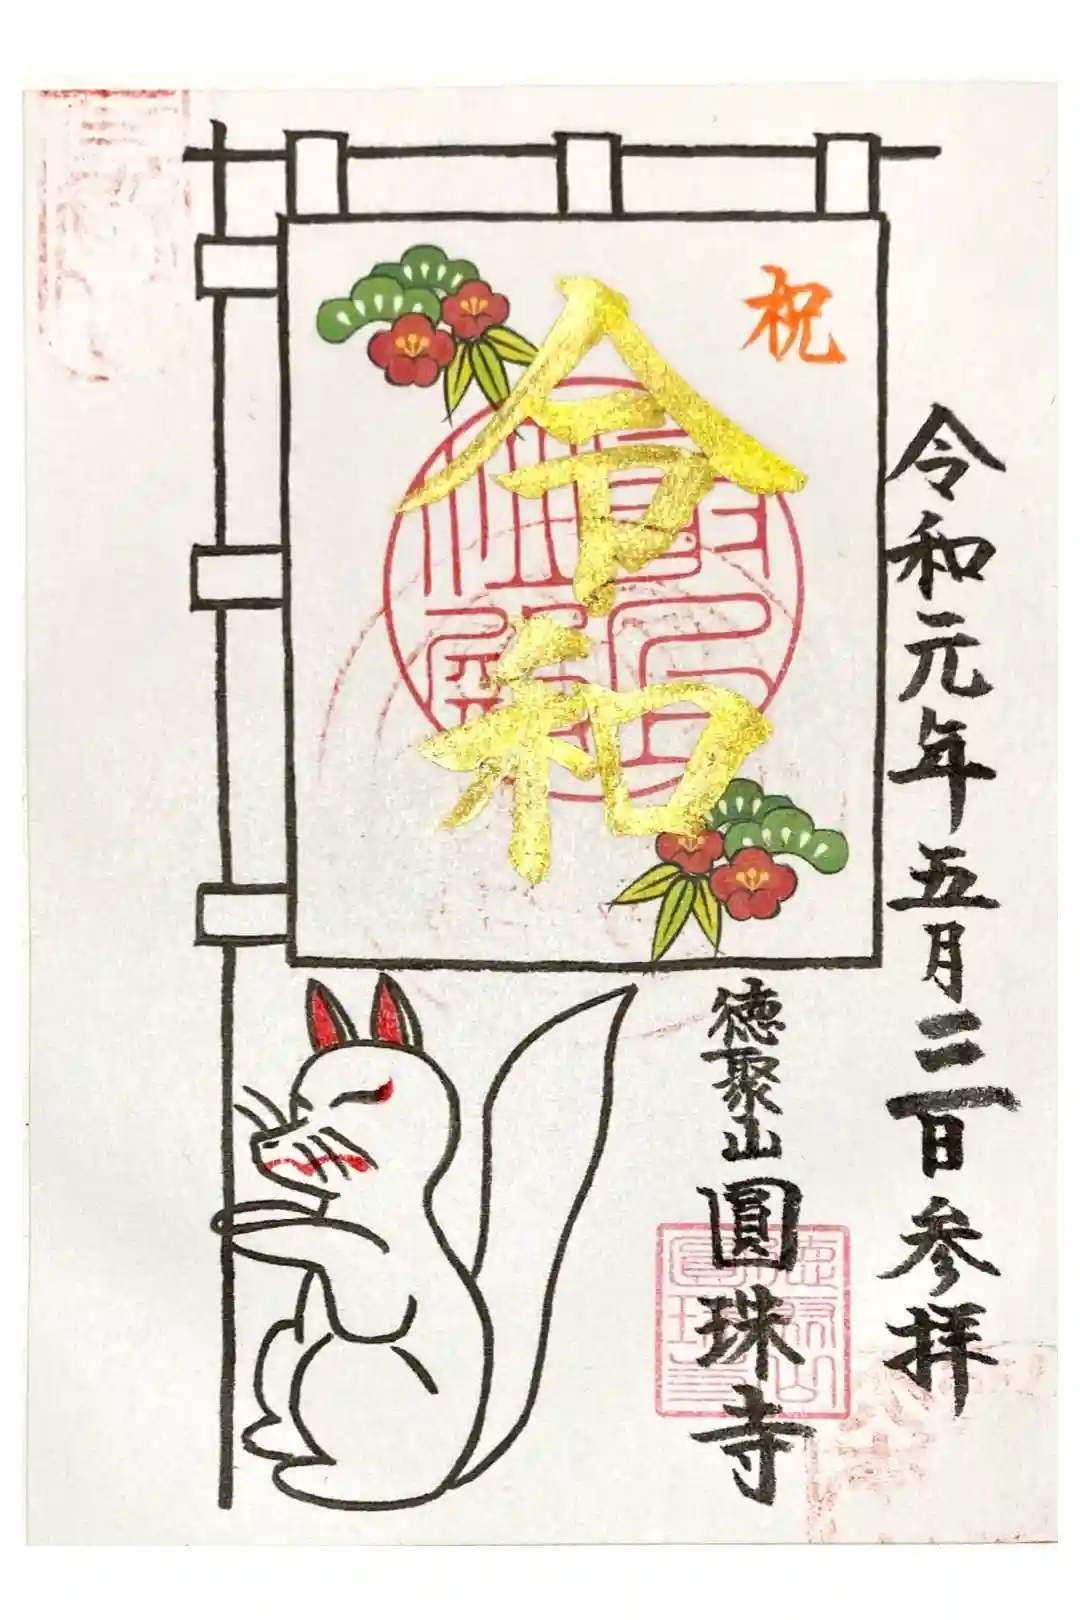 令和元年五月三日参拝
祝
令和
徳聚山圓珠寺